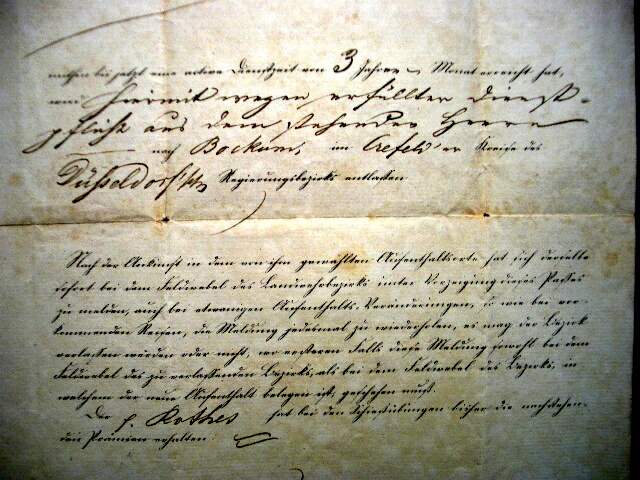 welcher bis jetzt eine active Dienstzeit von 3 Jahren — Monat erreicht hat,
wird hiermit wegen erfüllter Dienst-
pflicht aus dem stehenden Heere
nach Bockum, im Crefeld'er Kreise des
Düsseldorf'schen Regierungsbezirks entlassen
Nach der Ankunft in dem von ihm gewählten Aufenthaltsorte hat sich derselbe
sofort bei dem Feldwebel des Landwehrbezirks unter Vorzeigung dieses Passes
zu melden, auch bei etwanigen Aufenthalts-Veränderungen, so wie bei vor-
kommenden Reisen, die Meldung jedesmal zu wiederholen, es mag der Bezirk
verlassen werden oder nicht, wo ersteren Falls diese Meldung sowohl bei dem
Feldwebel des zu verlassenden Bezirks, als bei dem Feldwebel des Bezirks, in
welchem der neue Aufenthalt belegen ist, geschehen muß.
Der p. Rothes hat bei den Schießübungen bisher die nachstehen-
den Prämien erhalten: